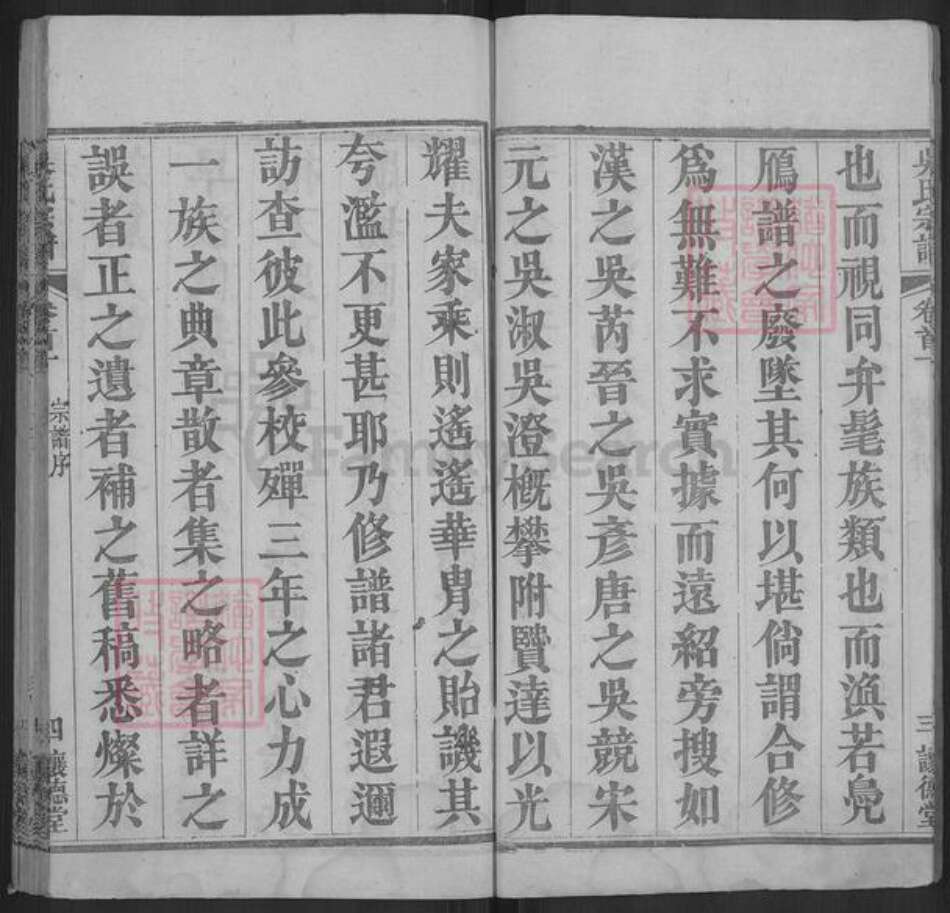 吳氏宗譜
卷首一
三 讓德堂
也而視同弁髦族類也而渙若鳧
鴈譜之廢墜其何以堪倘謂合修
為無難不求實據而遠紹旁搜如
漢之吳芮晉之吳彥唐之吳競宋
元之吳淑吳澄概攀附賢達以光
耀夫家乘則遙遙華胄之貽譏其
夸濫不更甚耶乃修譜諸君遐邇
訪查彼此參校殫三年之心力成
一族之典章散者集之略者詳之
誤者正之遺者補之舊稿悉燦於
吳氏宗譜
卷首一
宗譜序
四 讓德堂
FamilySearch